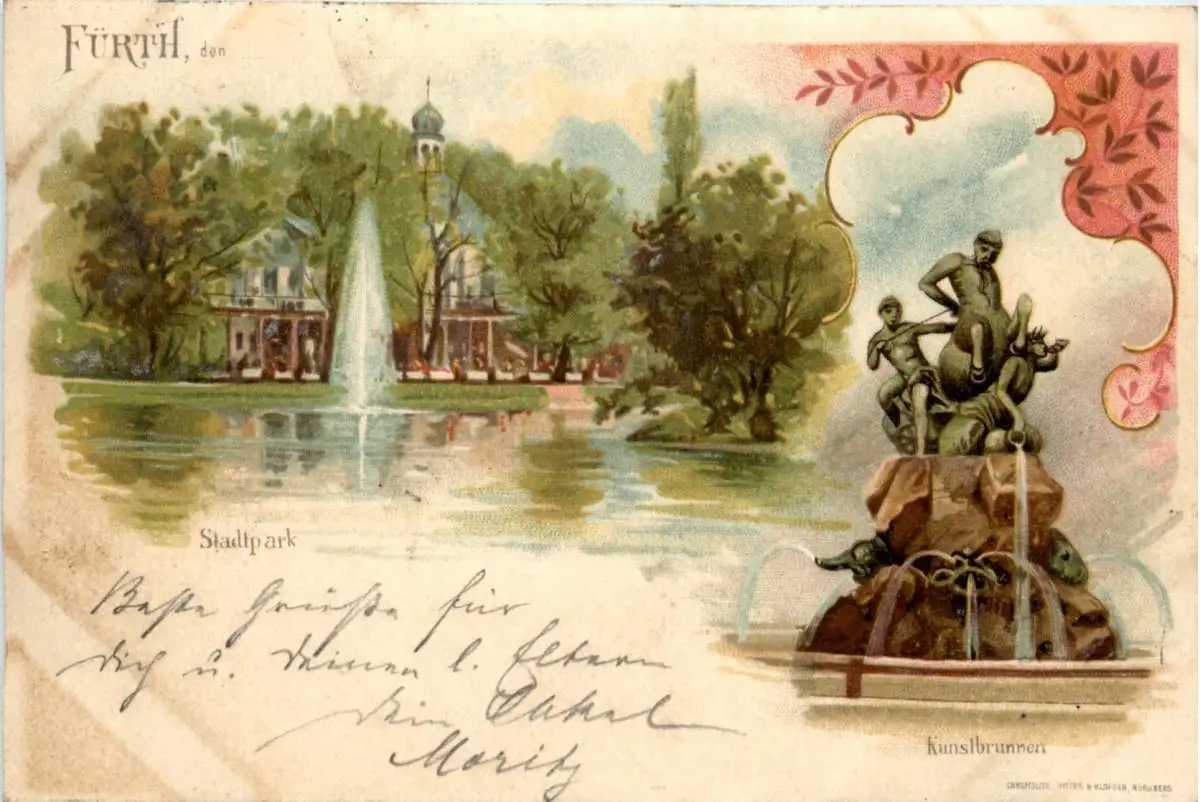 FÜRTH, den
Stadtpark
Beste Grüße für
Dich u. Deinen l. Eltern
Dein Onkel
Moritz
Kunstbrunnen
NÜRNBERG